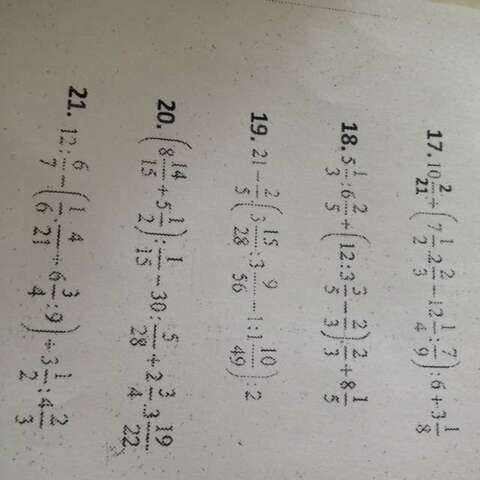 17. 10 2/21 + (7 1/2 · 2 2/3 − 12 1/4 : 7/9) : 6 + 3 1/8
18. 5 1/3 : 6 2/5 + (12 : 3 3/5 − 2/3) · 2/3 + 8 1/5
19. 21 − 2/5 (3 15/28 : 3 9/56 − 1 : 1 10/49) : 2
20. (8 14/15 + 5 1/2) : 1/15 − 30 : 5/28 + 2 3/4 · 3 19/22
21. 12 : 6/7 − (1/6 · 4/21 + 6 3/4 : 9) + 3 1/2 : 4 2/3